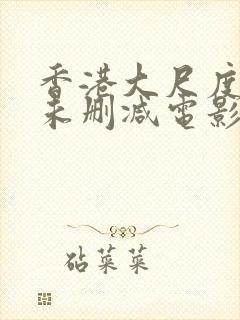 香港大尺度
未删减电影
砧菜菜